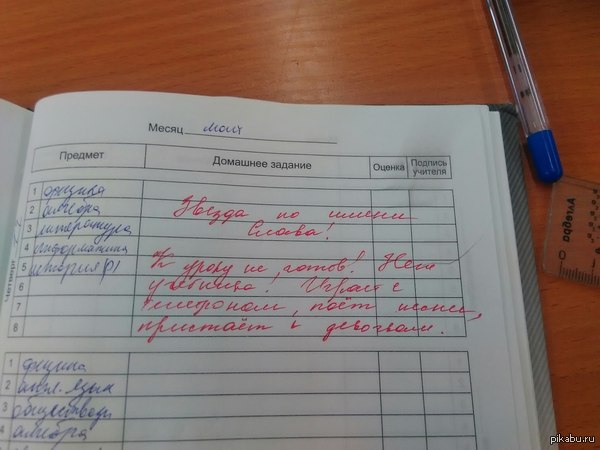 Месяц март
Предмет Домашнее задание Оценка Подпись учителя
1 физика
2 алгебра Звезда по имени
3 литература Слава!
4 информатика
5 история (р) К уроку не готов! Нет
6 учебника! Играет с
7 телефоном, поёт песни,
8 пристаёт к девочкам.
Четверг
1 физика
2 англ. язык
3 обществозн
4 алгебра
0
pikabu.ru